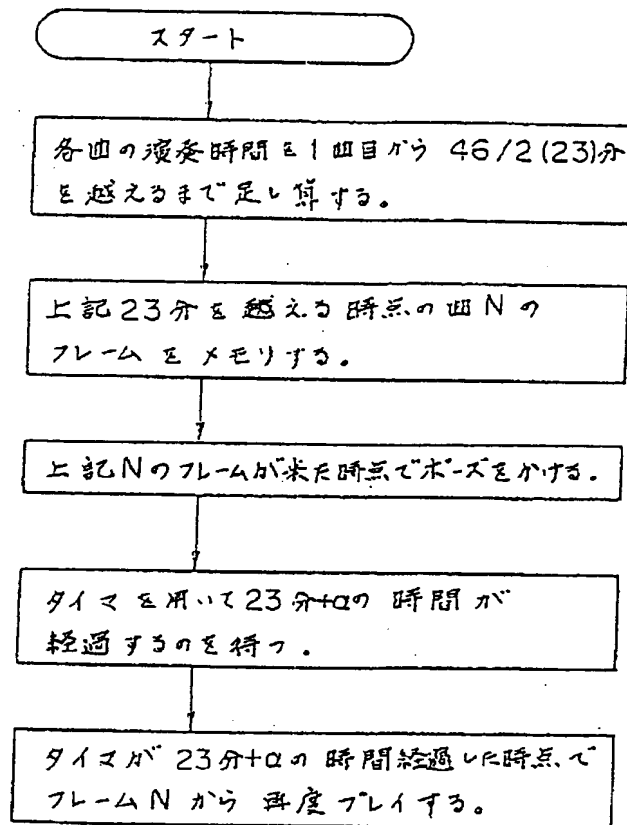 スタート
各曲の演奏時間を1曲目から 46/2(23)分
を越えるまで足し算する。
上記23分を越える時点の曲Nの
フレームをメモリする。
上記Nのフレームが来た時点でポーズをかける.
タイマを用いて23分+αの時間が
経過するのを待つ.
タイマが23分+αの時間経過した時点で
フレームNから再度プレイする。